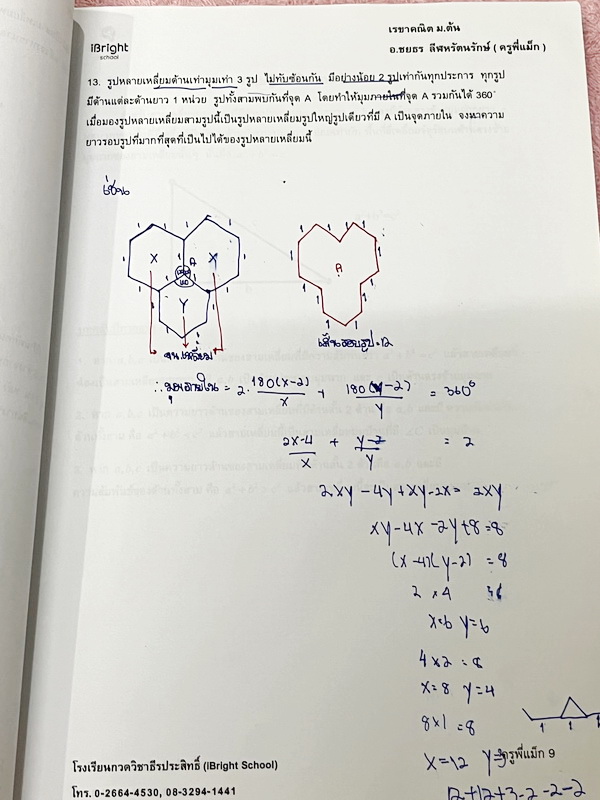 iBright
school
เรขาคณิต ม.ต้น
อ.ชยธร ลีฬหรัตนรักษ์ ( ครูพี่แม็ก )
13. รูปหลายเหลี่ยมด้านเท่ามุมเท่า 3 รูป ไม่ทับซ้อนกัน มีอย่างน้อย 2 รูปเท่ากันทุกประการ ทุกรูป
มีด้านแต่ละด้านยาว 1 หน่วย รูปทั้งสามพบกันที่จุด A โดยทำให้มุมภายในที่จุด A รวมกันได้ 360°
เมื่อมองรูปหลายเหลี่ยมสามรูปนี้เป็นรูปหลายเหลี่ยมรูปใหญ่รูปเดียวที่มี A เป็นจุดภายใน จงหาความ
ยาวรอบรูปที่มากที่สุดที่เป็นไปได้ของรูปหลายเหลี่ยมนี้
เช่น
X A X
Y
A
จน.เหลี่ยม
เส้นรอบรูป = 12
∴ มุมภายใน = 2· 180(x-2)/x + 180(y-2)/y = 360°
2x-4/x + y-2/y = 2
2xy - 4y + xy - 2x = 2xy
xy - 4x - 2y + 8 = 8
(x-4)(y-2) = 8
2 × 4
x=6 y=6
4 × 2 = 8
x=8 y=4
8×1 = 8
x=12 y=3
ครูพี่แม็ก 9
12+12+3-2-2-2
1 1 1
โรงเรียนกวดวิชาธีรประสิทธิ์ (iBright School)
โทร. 0-2664-4530, 08-3294-1441